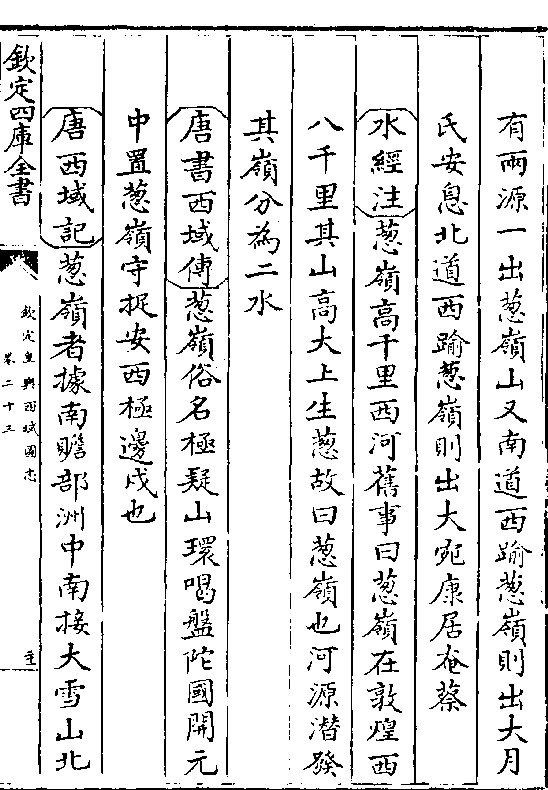 有兩源一出葱嶺山又南道西踰葱嶺則出大月
氏安息北道西踰葱嶺則出大宛康居奄蔡
水經注葱嶺高千里西河舊事曰葱嶺在敦煌西
八千里其山高大上生葱故曰葱嶺也河源潛發
其嶺分為二水
唐書西域傳葱嶺俗名極疑山環喝盤陀國開元
中置葱嶺守捉安西極邊戍也
唐西域記葱嶺者據南贍部洲中南接大雪山北
欽定四庫全書
欽定皇輿西域圖志
卷二十三